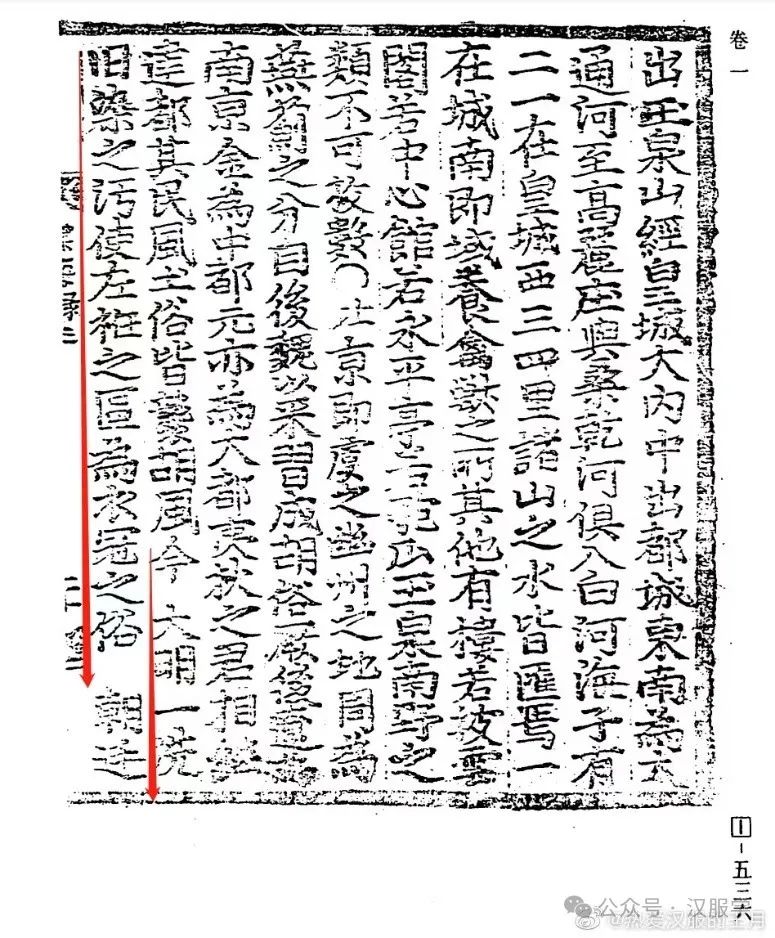 卷一
出玉泉山經自皇城大內中出都城東南為大
通河至高麗庄與桑乾河俱入白河海子有
二一在皇城西三四里諸山之水皆匯焉一
在城南即域養禽獸之所其他有樓若披雲
閣若中心館若永平亭 玉泉南野之
類不可枚數○北京即虞之幽州之地周為
燕薊之分自後魏以来習成胡俗厥後遼為
南京金為中都元亦為大都夷狄之君相繼
建都其民風土俗皆襲胡風今 大明一洗
旧染之汚使左衽之區為衣冠之俗 朝廷
1-五三六
公众号·汉服荣
@热爱汉服的王月